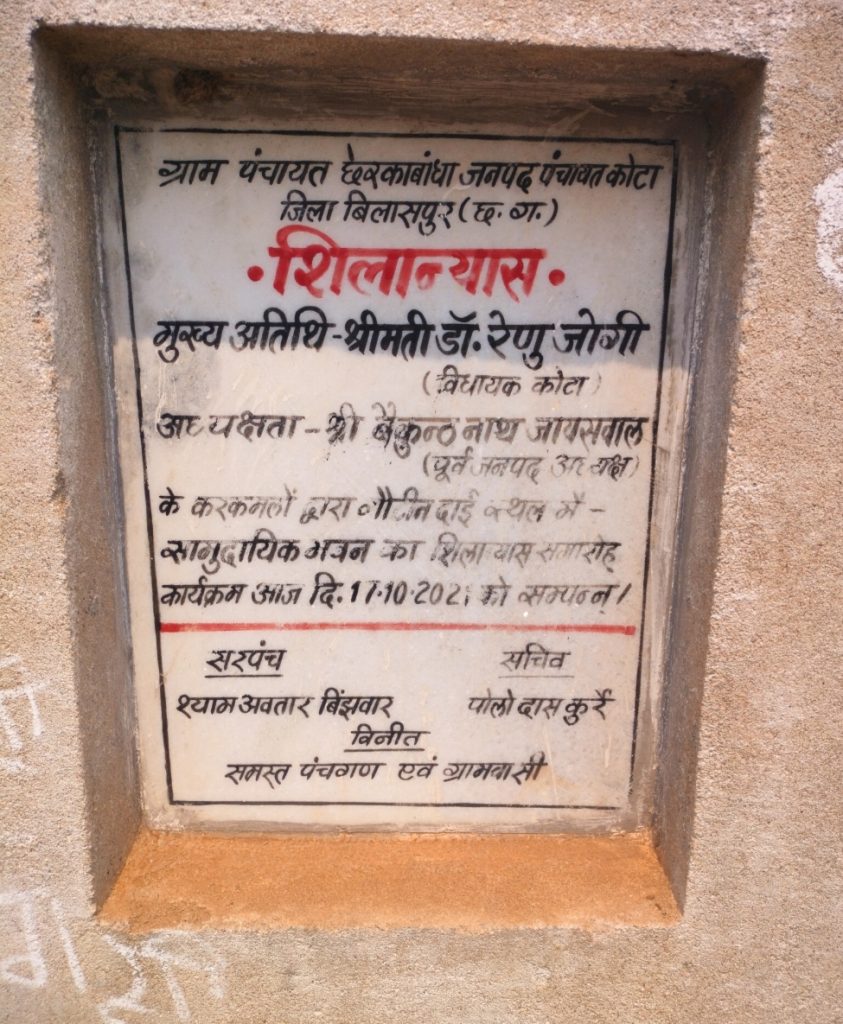 ग्राम पंचायत छेरकाबांधा जनपद पंचायत कोटा
जिला बिलासपुर (छ. ग.)
• शिलान्यास •
मुख्य अतिथि - श्रीमती डॉ. रेणु जोगी
(विधायक कोटा)
अध्यक्षता - श्री बैकुन्ठ नाथ जायसवाल
(पूर्व जनपद अध्यक्ष)
के करकमलों द्वारा दाई स्थल में -
सामुदायिक भवन का शिलान्यास समारोह
कार्यक्रम आज दि. 17.10.2021 को सम्पन्न।
सरपंच
सचिव
श्याम अवतार बिंझवार
पोलो दास कुर्रे
विनीत
समस्त पंचगण एवं ग्रामवासी